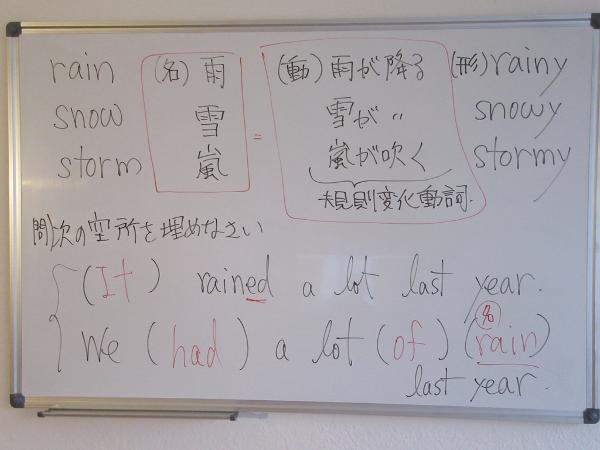 rain (名) 雨 (動) 雨が降る (形) rainy
snow 雪 = 雪が 〃 snowy
storm 嵐 嵐が吹く stormy
規則変化動詞.
問 次の空所を埋めなさい
(It) rained a lot last year.
名
We (had) a lot (of) (rain)
last year.